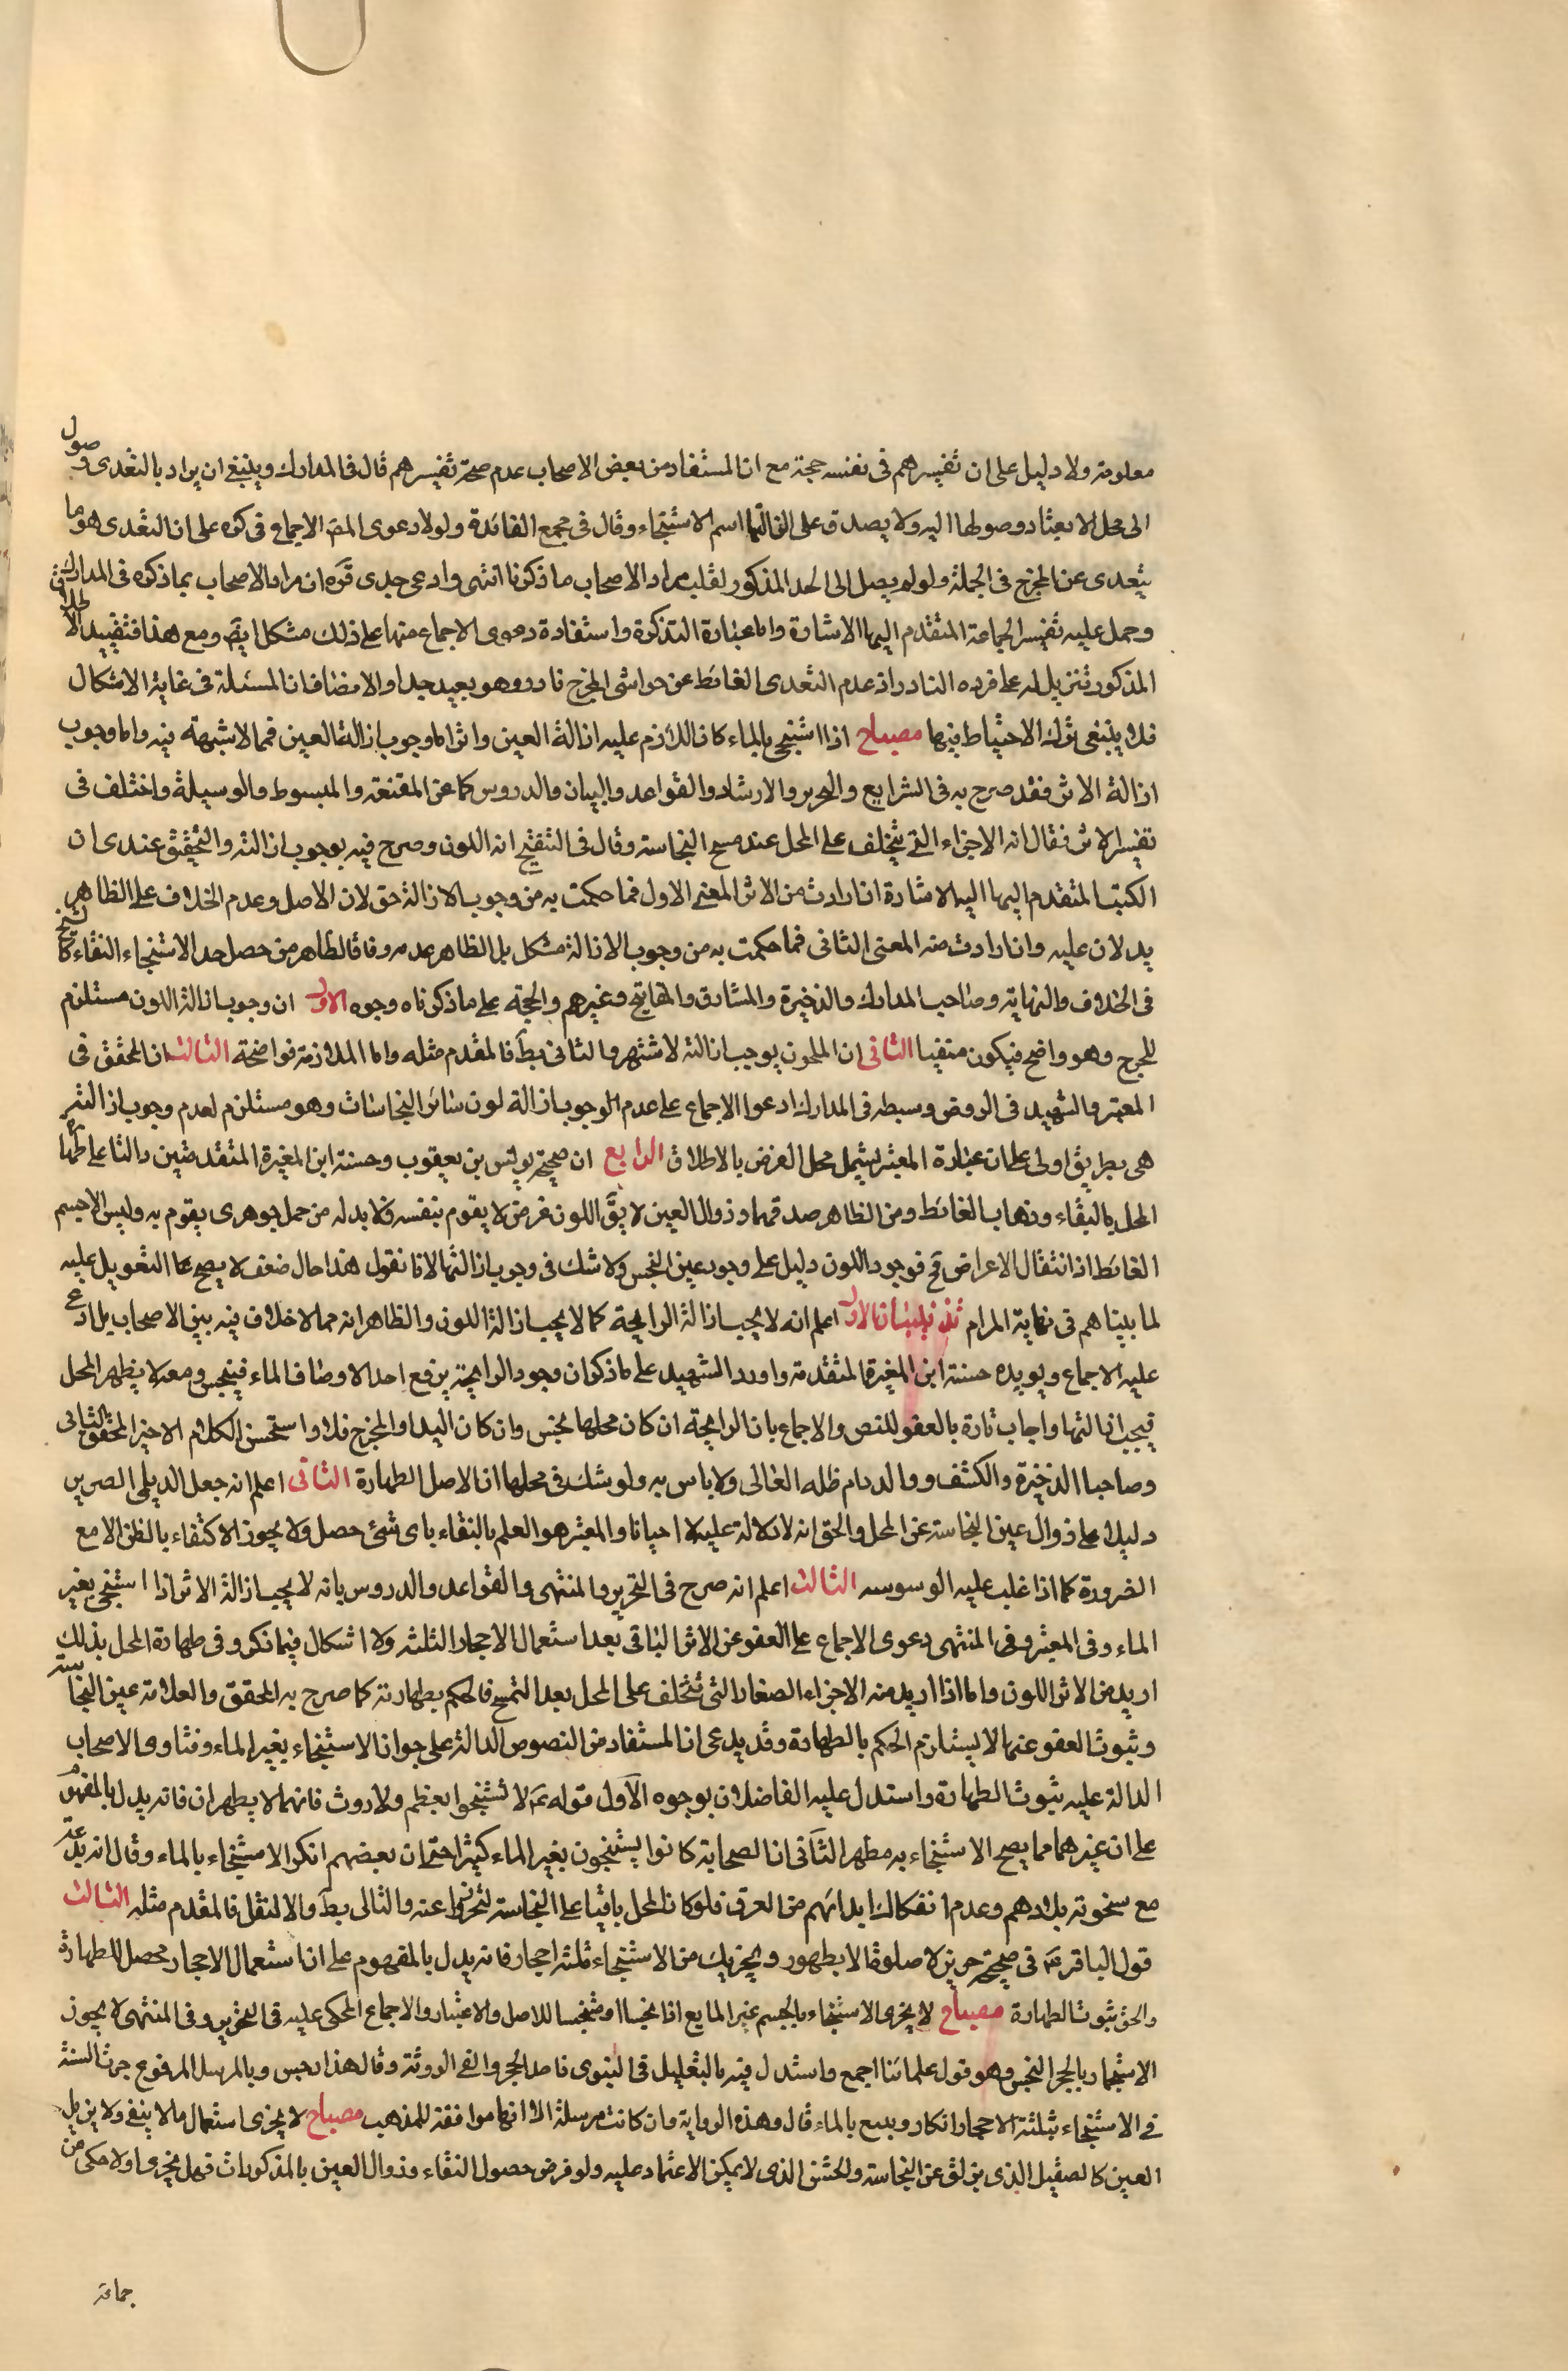 معلومة ولا دليل على ان تفسيرهم فى نفسه حجة مع ان المستفاد من بعض الاصحاب عدم صحة تفسيرهم قال فى المدارك وينبغى ان يراد بالتعدى وصول
الى محل لا يعتاد وصولها اليه ولا يصدق على ازالتها اسم الاستنجاء وقال فى مجمع الفائدة ولولا دعوى المص الاجماع فى كره على ان التعدى هو ما
يتعدى عن المخرج فى الجملة ولو لم يصل الى الحد المذكور لقلت مراد الاصحاب ما ذكرنا انتهى وادعى جدى قره ان مراد الاصحاب بما ذكره فى المدارك
وحمل عليه تفسير الجماعة المتقدم اليها الاشارة واما عبارة التذكرة واستفادة دعوى الاجماع منها على ذلك مشكل ايضا ومع هذا فتقييد الاطلاق
المذكور تنزيل له على فرده النادر اذ عدم التعدى الغائط عن حواشى المخرج نادر وهو بعيد جدا والانصاف ان المسئلة فى غاية الاشكال
فلا ينبغى ترك الاحتياط فيها مصباح اذا استنجى بالماء كان اللازم عليه ازالة العين واثر اما وجوب ازالة العين فمما لا شبهة فيه واما وجوب
ازالة الاثر فقد صرح به فى الشرايع والتحرير والارشاد والقواعد والبيان والدروس كما عن المقنعة والمبسوط والوسيلة واختلف فى
تفسير الاثر فقال انه الاجزاء التى تتخلف على المحل عند مسح النجاسة وقال فى التنقيح انه اللون وصرح فيه بوجوب ازالته والتحقيق عندى ان
الكتب المتقدم اليها اليه الاشارة ان ارادت من الاثر المعنى الاول فما حكمت به من وجوب الازالة حق لان الاصل وعدم الخلاف على الظاهر
يدلان عليه وان ارادت منه المعنى الثانى فما حكمت به من وجوب الازالة مشكل بل الظاهر عدمه وفاقا لظاهر من حصل حد الاستنجاء النقاء كالشيخ
فى الخلاف والنهاية وصاحب المدارك والذخيرة والمشارق والمفاتيح وغيرهم والحجة على ما ذكرناه وجوه الاول ان وجوب ازالة اللون مستلزم
للحرج وهو واضح فيكون منفيا الثانى ان الملون يوجب ازالته لاشتهر والثانى بط فالمقدم مثله واما الملازمة فواضحة الثالث ان المحقق فى
المعتبر والشهيد فى الروض وسبطه فى المدارك ادعوا الاجماع على عدم الوجوب ازالة لون سائر النجاسات وهو مستلزم لعدم وجوب ازالته
هى بطريق اولى على ان عبارة المعتبر يشمل محل الفرض بالاطلاق الرابع ان صحيحة يونس بن يعقوب وحسنة ابن المغيرة المتقدمتين دالتا على طهارة
المحل بالنقاء وذهاب الغائط ومن الظاهر صدقهما وزوال العين لا يق اللون عرض لا يقوم بنفسه فلا بد له من حمل جوهرى يقوم به وليس الا جسم
الغائط اذ انتقال الاعراض مح فوجود اللون دليل على وجود عين النجس ولا شك فى وجوب ازالتها لانا نقول هذا حال ضعف لا يصح عما التعويل عليه
لما بيناهم فى نهاية المرام الاول اعلم انه لا يجب ازالة الرايحة كما لا يجب ازالة اللون والظاهر انه مما لا خلاف فيه بين الاصحاب بل ادعى
عليه الاجماع ويويده حسنة ابن المغيرة المتقدمة واورد الشهيد على ما ذكر ان وجود الرايحة يرفع احد الاوصاف الماء فينجس ومعه لا يطهر المحل
فيجب ازالتها واجاب تارة بالعفو للنص والاجماع بان الرايحة ان كان محلها نجس وان كان اليد او المخرج فلا واستحسن الكلام الاخير المحقق الثانى
وصاحبا الذخيرة والكشف ووالد دام ظله العالى ولا باس به ولو شك فى محلها ان الاصل الطهارة الثانى اعلم انه جعل الديلمى الصرير
دليلا على زوال عين النجاسة عن المحل والحق انه لا دلالة عليه الا احيانا والمعتبر هو العلم بالنقاء باى شئ حصل ولا يجوز الاكتفاء بالظن الا مع
الضرورة كما اذا غلب عليه الوسوسه الثالث اعلم انه صرح فى التحرير والمنتهى والقواعد والدروس بانه لا يجب ازالة الاثر اذا استنجى بغير
الماء وفى المعتبر وفى المنتهى دعوى الاجماع على العفو عن الاثر الباقى بعد استعمال الاحجار الثلثه ولا اشكال فيما ذكر وفى طهارة المحل بذلك
اريد من الاثر اللون واما اذا اريد منه الاجزاء الصغار التى تتخلف على المحل بعد التمسح فالحكم بطهارته كما صرح به المحقق والعلامة عين النجاسة
وثبوت العفو عنها لا يستلزم الحكم بالطهارة وقد يدعى ان المستفاد من النصوص الدالة على جواز الاستنجاء بغير الماء وفتاوى الاصحاب
الدالة عليه ثبوت الطهارة واستدل عليه الفاضلان بوجوه الاول قوله ع لا تستنجوا بعظم ولا روث فانهما لا يطهران فانه يدل بالمفهوم
على ان غيرهما مما يصح الاستنجاء به مطهر الثانى ان الصحابة كانوا يستنجون بغير الماء كثيرا حتى ان بعضهم انكر الاستنجاء بالماء وقال انه بدعة
مع سخونة بلادهم وعدم انفكاك ابدانهم من العرق فلو كان المحل باقيا على النجاسة لتحرزوا عنه والتالى بط والا لنقل فالمقدم مثله الثالث
قول الباقر ع فى صحيحة حريز لا صلوة الا بطهور ويجزيك من الاستنجاء ثلثه احجار فانه يدل بالمفهوم على ان استعمال الاحجار محصل للطهارة
والحق ثبوت الطهارة مصباح لا يجزى الاستنجاء بالجسم غير المايع اذا نجسا او متنجسا للاصل والاعتبار والاجماع المحكى عليه فى التحرير وفى المنتهى لا يجوز
الاستجمار بالحجر النجس وهو قول علمائنا اجمع واستدل فيه بالتعليل فى النبوى ناصد الحجر والقى الروثة وقال هذا رجس وبالمرسل المرفوع جرت السنة
فى الاستنجاء بثلثة الاحجار ابكار ويتبع بالماء قال وهذه الرواية وان كانت مرسلة الا انها موافقة للمذهب مصباح لا يجزى استعمال ما لا ينقى ولا يزيل
العين كالصقيل الذى يزلق عن النجاسة والخشن الذى لا يمكن الاعتماد عليه ولو فرض حصول النقاء وزوال العين بالمذكورات فهل يجزى او لا حكى من
جماعة